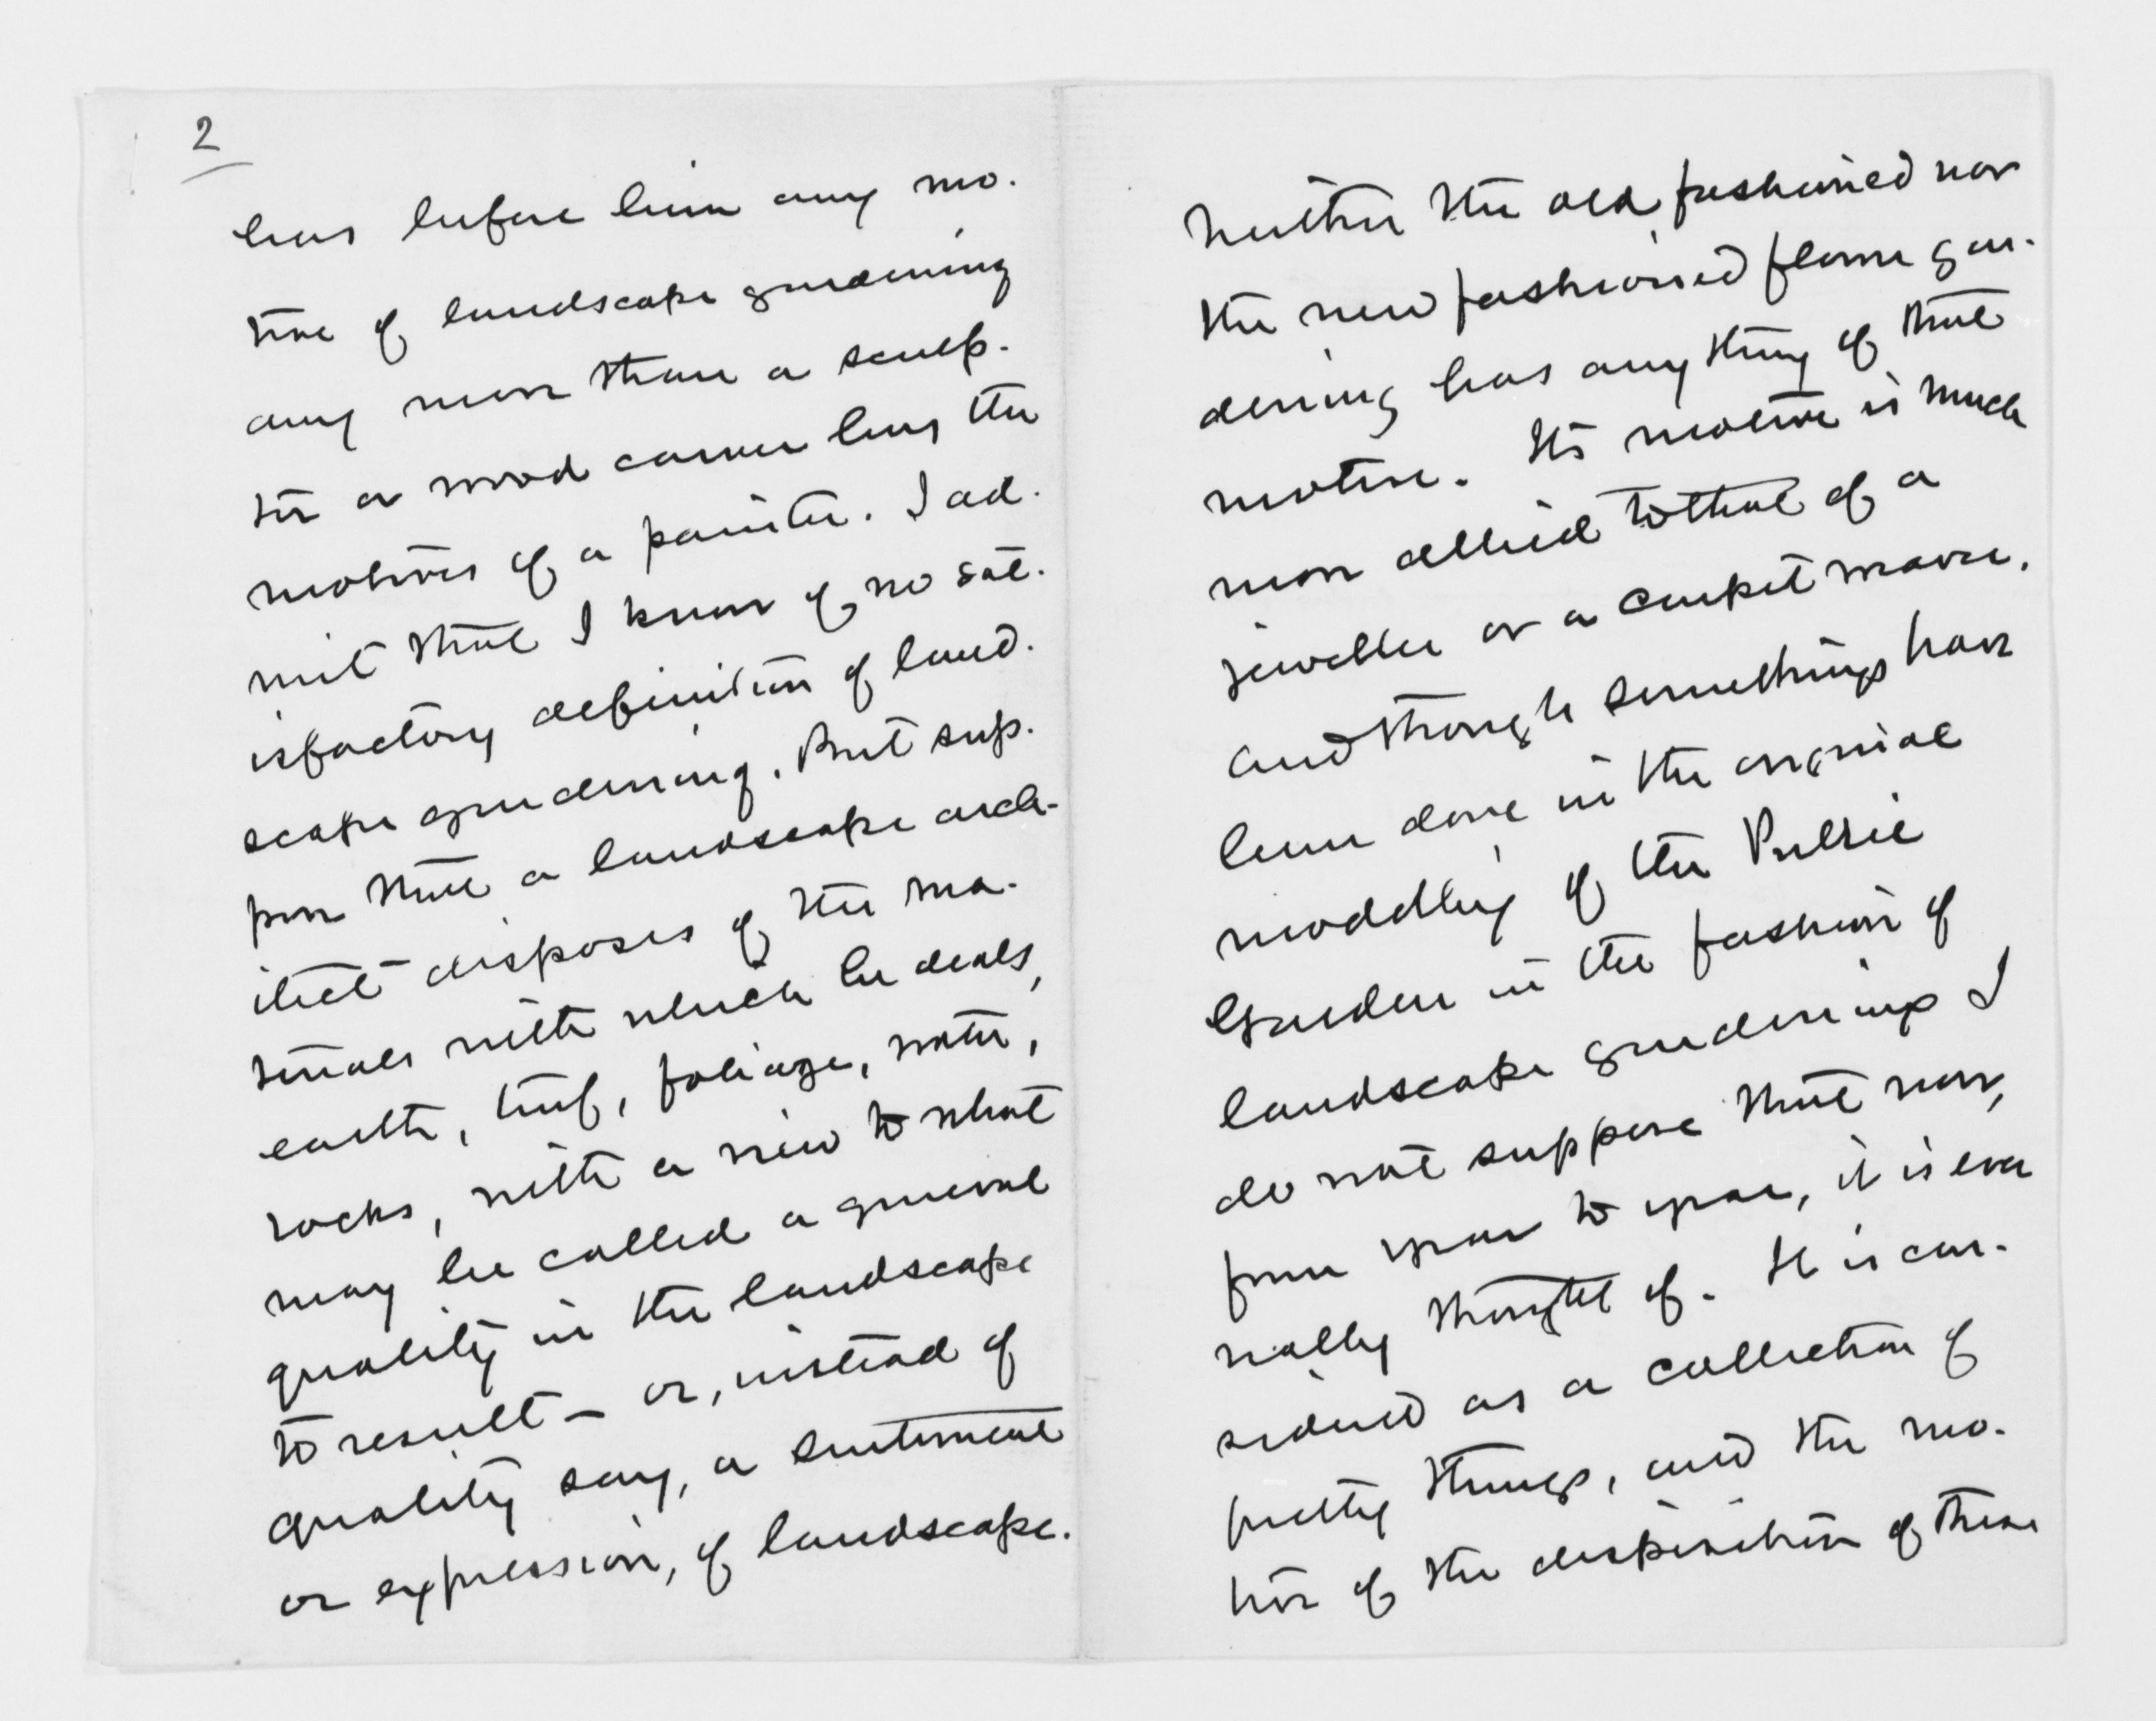 2
has before him any mo-
tive of landscape gardening
any more than a sculp-
tor or wood carver has the
motives of a painter. I ad-
mit that I know of no sat-
isfactory definition of land-
scape gardening. But sup-
pose that a landscape arch-
itect disposes of the ma-
terials with which he deals,
earth, turf, foliage, water,
rocks, with a view to what
may be called a general
quality in the landscape
to result – or, instead of
quality say, a sentiment
or expression, of landscape.
Neither the old fashioned nor
the new fashioned flower gar-
dening has any thing of that
motive. Its motive is much
more allied to that of a
jeweller or a carpet weaver.
And though something have
been done in the original
modelling of the Public
Garden in the fashion of
landscape gardening I
do not suppose that now,
from year to year, it is ever
really thought of. It is con-
sidered as a collection of
pretty things, and the mo-
tive of the disposition of these